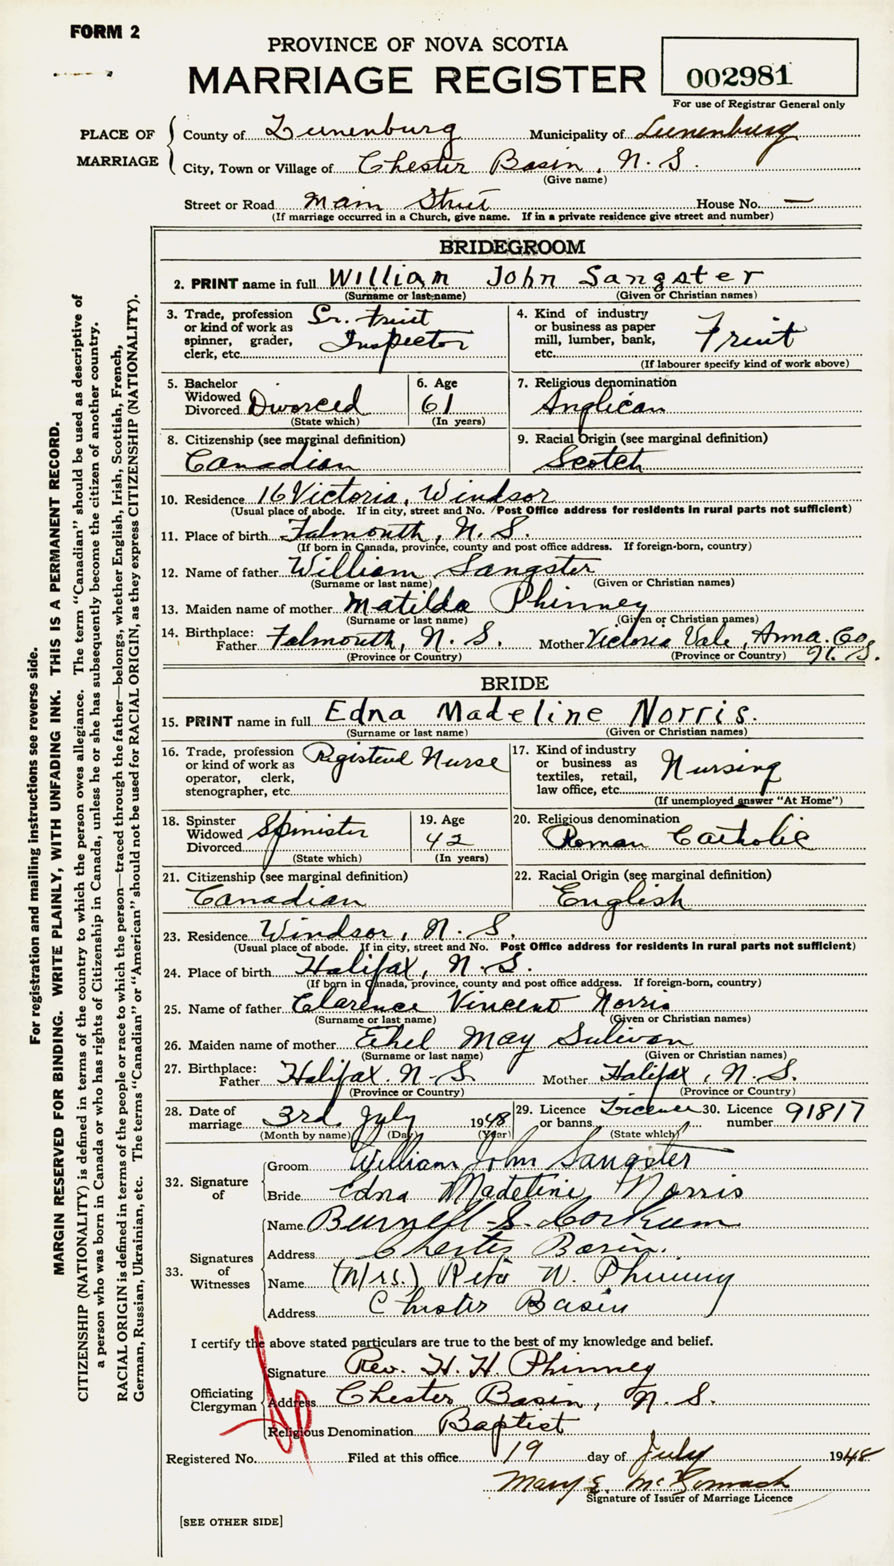 FORM 2
PROVINCE OF NOVA SCOTIA
MARRIAGE REGISTER
002981
For use of Registrar General only
PLACE OF MARRIAGE
County of Lunenburg Municipality of Lunenburg
City, Town or Village of Chester Basin, N. S.
(Give name)
Street or Road Main Street House No. —
(If marriage occurred in a Church, give name. If in a private residence give street and number)
BRIDEGROOM
2. PRINT name in full William John Sangster
(Surname or last name) (Given or Christian names)
3. Trade, profession or kind of work as spinner, grader, clerk, etc. Sr. Fruit Inspector
4. Kind of industry or business as paper mill, lumber, bank, etc. Fruit
(If labourer specify kind of work above)
5. Bachelor Widowed Divorced Divorced
(State which)
6. Age 61
(In years)
7. Religious denomination Anglican
8. Citizenship (see marginal definition) Canadian
9. Racial Origin (see marginal definition) Scotch
10. Residence 16 Victoria, Windsor
(Usual place of abode. If in city, street and No. Post Office address for residents in rural parts not sufficient)
11. Place of birth Falmouth, N. S.
(If born in Canada, province, county and post office address. If foreign-born, country)
12. Name of father William Sangster
(Surname or last name) (Given or Christian names)
13. Maiden name of mother Matilda Phinney
(Surname or last name) (Given or Christian names)
14. Birthplace: Father Falmouth, N. S. Mother Victoria Vale, Anna. Co N. S.
(Province or Country) (Province or Country)
BRIDE
15. PRINT name in full Edna Madeline Norris.
(Surname or last name) (Given or Christian names)
16. Trade, profession or kind of work as operator, clerk, stenographer, etc. Registered Nurse
17. Kind of industry or business as textiles, retail, law office, etc. Nursing
(If unemployed answer "At Home")
18. Spinster Widowed Divorced Spinister
(State which)
19. Age 42
(In years)
20. Religious denomination Roman Catholic
21. Citizenship (see marginal definition) Canadian
22. Racial Origin (see marginal definition) English
23. Residence Windsor, N. S.
(Usual place of abode. If in city, street and No. Post Office address for residents in rural parts not sufficient)
24. Place of birth Halifax, N. S.
(If born in Canada, province, county and post office address. If foreign-born, country)
25. Name of father Clarence Vincent Norris
(Surname or last name) (Given or Christian names)
26. Maiden name of mother Ethel May Sulivan
(Surname or last name) (Given or Christian names)
27. Birthplace: Father Halifax. N. S. Mother Halifax, N. S.
(Province or Country) (Province or Country)
28. Date of marriage 3rd. July 1948
(Month by name) (Day) (Year)
29. Licence or banns Licence
(State which)
30. Licence number 91817
32. Signature of
Groom William John Sangster
Bride Edna Madeline Norris
33. Signatures of Witnesses
Name Burnell S. Corkum
Address Chester Basin.
Name (Mrs.) Rita W. Phinney
Address Chester Basin
I certify the above stated particulars are true to the best of my knowledge and belief.
Officiating Clergyman
Signature Rev. H. H. Phinney
Address Chester Basin, N. S.
Religious Denomination Baptist
Registered No. Filed at this office 19 day of July 1948
Signature of Issuer of Marriage Licence
[SEE OTHER SIDE]
For registration and mailing instructions see reverse side.
MARGIN RESERVED FOR BINDING. WRITE PLAINLY, WITH UNFADING INK. THIS IS A PERMANENT RECORD.
CITIZENSHIP (NATIONALITY) is defined in terms of the country to which the person owes allegiance. The term "Canadian" should be used as descriptive of
a person who was born in Canada or who has rights of Citizenship in Canada, unless he or she has subsequently become the citizen of another country.
RACIAL ORIGIN is defined in terms of the people or race to which the person—traced through the father—belongs, whether English, Irish, Scottish, French,
German, Russian, Ukrainian, etc. The terms "Canadian" or "American" should not be used for RACIAL ORIGIN, as they express CITIZENSHIP (NATIONALITY).